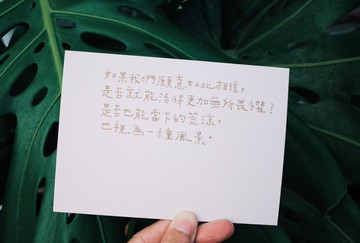 如果我們願意如此相信，
是否就能活得更加無所畏懼！
是否也能當下的荒涼，
也視為一種風景。